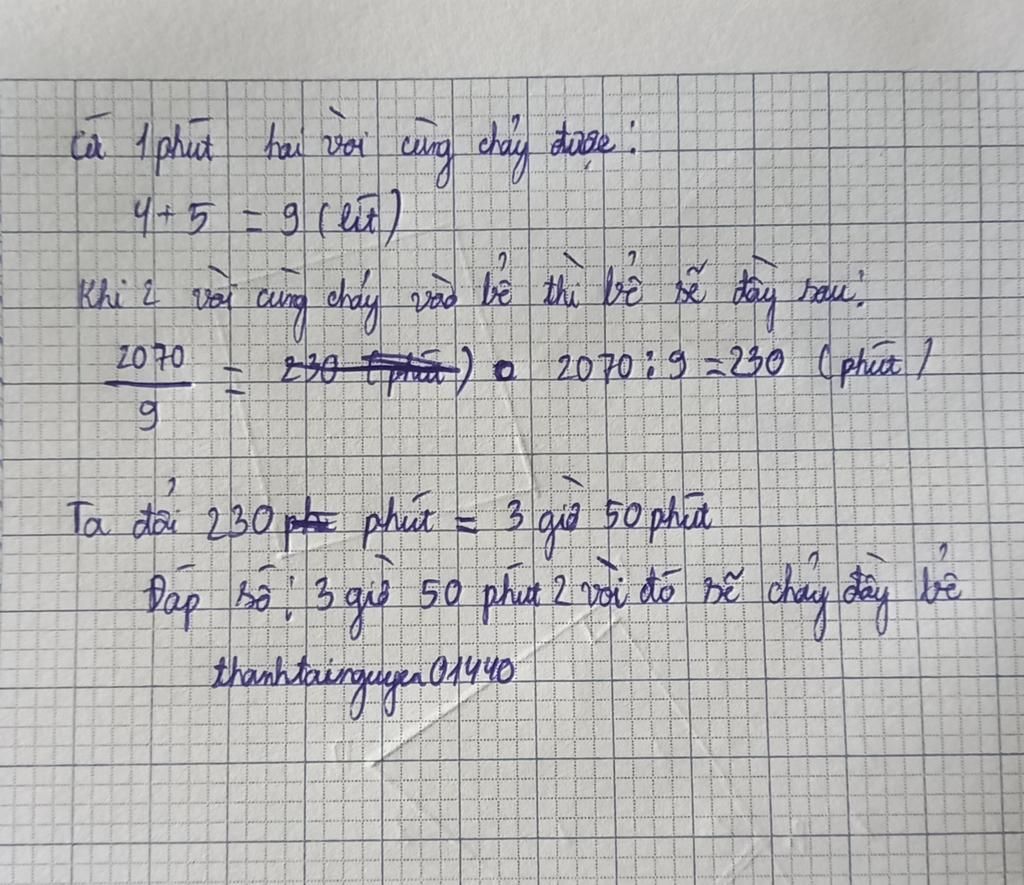 Cả 1 phút hai vòi cùng chảy được:
4 + 5 = 9 (lít)
Khi 2 vòi cùng chảy vào bể thì bể sẽ đầy sau:
2070/9 = 230 (phút) 2070 : 9 = 230 (phút)
Ta đổi 230 ph phút = 3 giờ 50 phút
Đáp số: 3 giờ 50 phút 2 vòi đó sẽ chảy đầy bể
thanhtainguyen01440